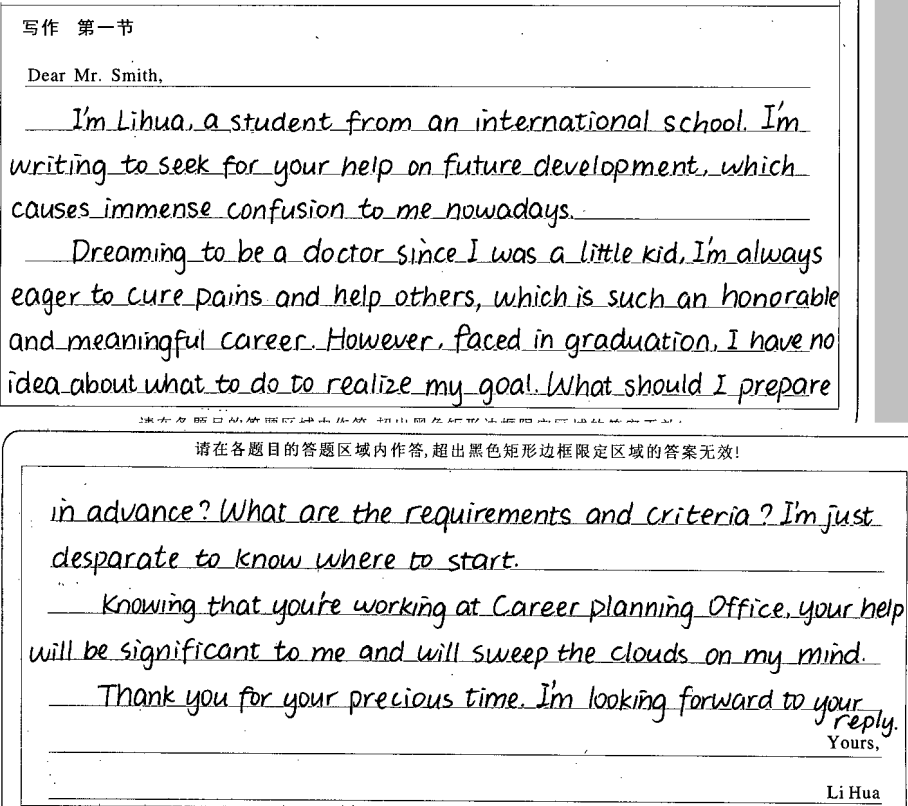 写作 第一节
Dear Mr. Smith,
I'm Lihua, a student from an international school. I'm
writing to seek for your help on future development, which
causes immense confusion to me nowadays.
Dreaming to be a doctor since I was a little kid, I'm always
eager to cure pains and help others, which is such an honorable
and meaningful career. However, faced in graduation, I have no
idea about what to do to realize my goal. What should I prepare
请在各题目的答题区域内作答,超出黑色矩形边框限定区域的答案无效!
请在各题目的答题区域内作答,超出黑色矩形边框限定区域的答案无效!
in advance? What are the requirements and criteria? I'm just
desparate to know where to start.
Knowing that you're working at Career planning Office, your help
will be significant to me and will sweep the clouds on my mind.
Thank you for your precious time. I'm looking forward to your
reply.
Yours,
Li Hua